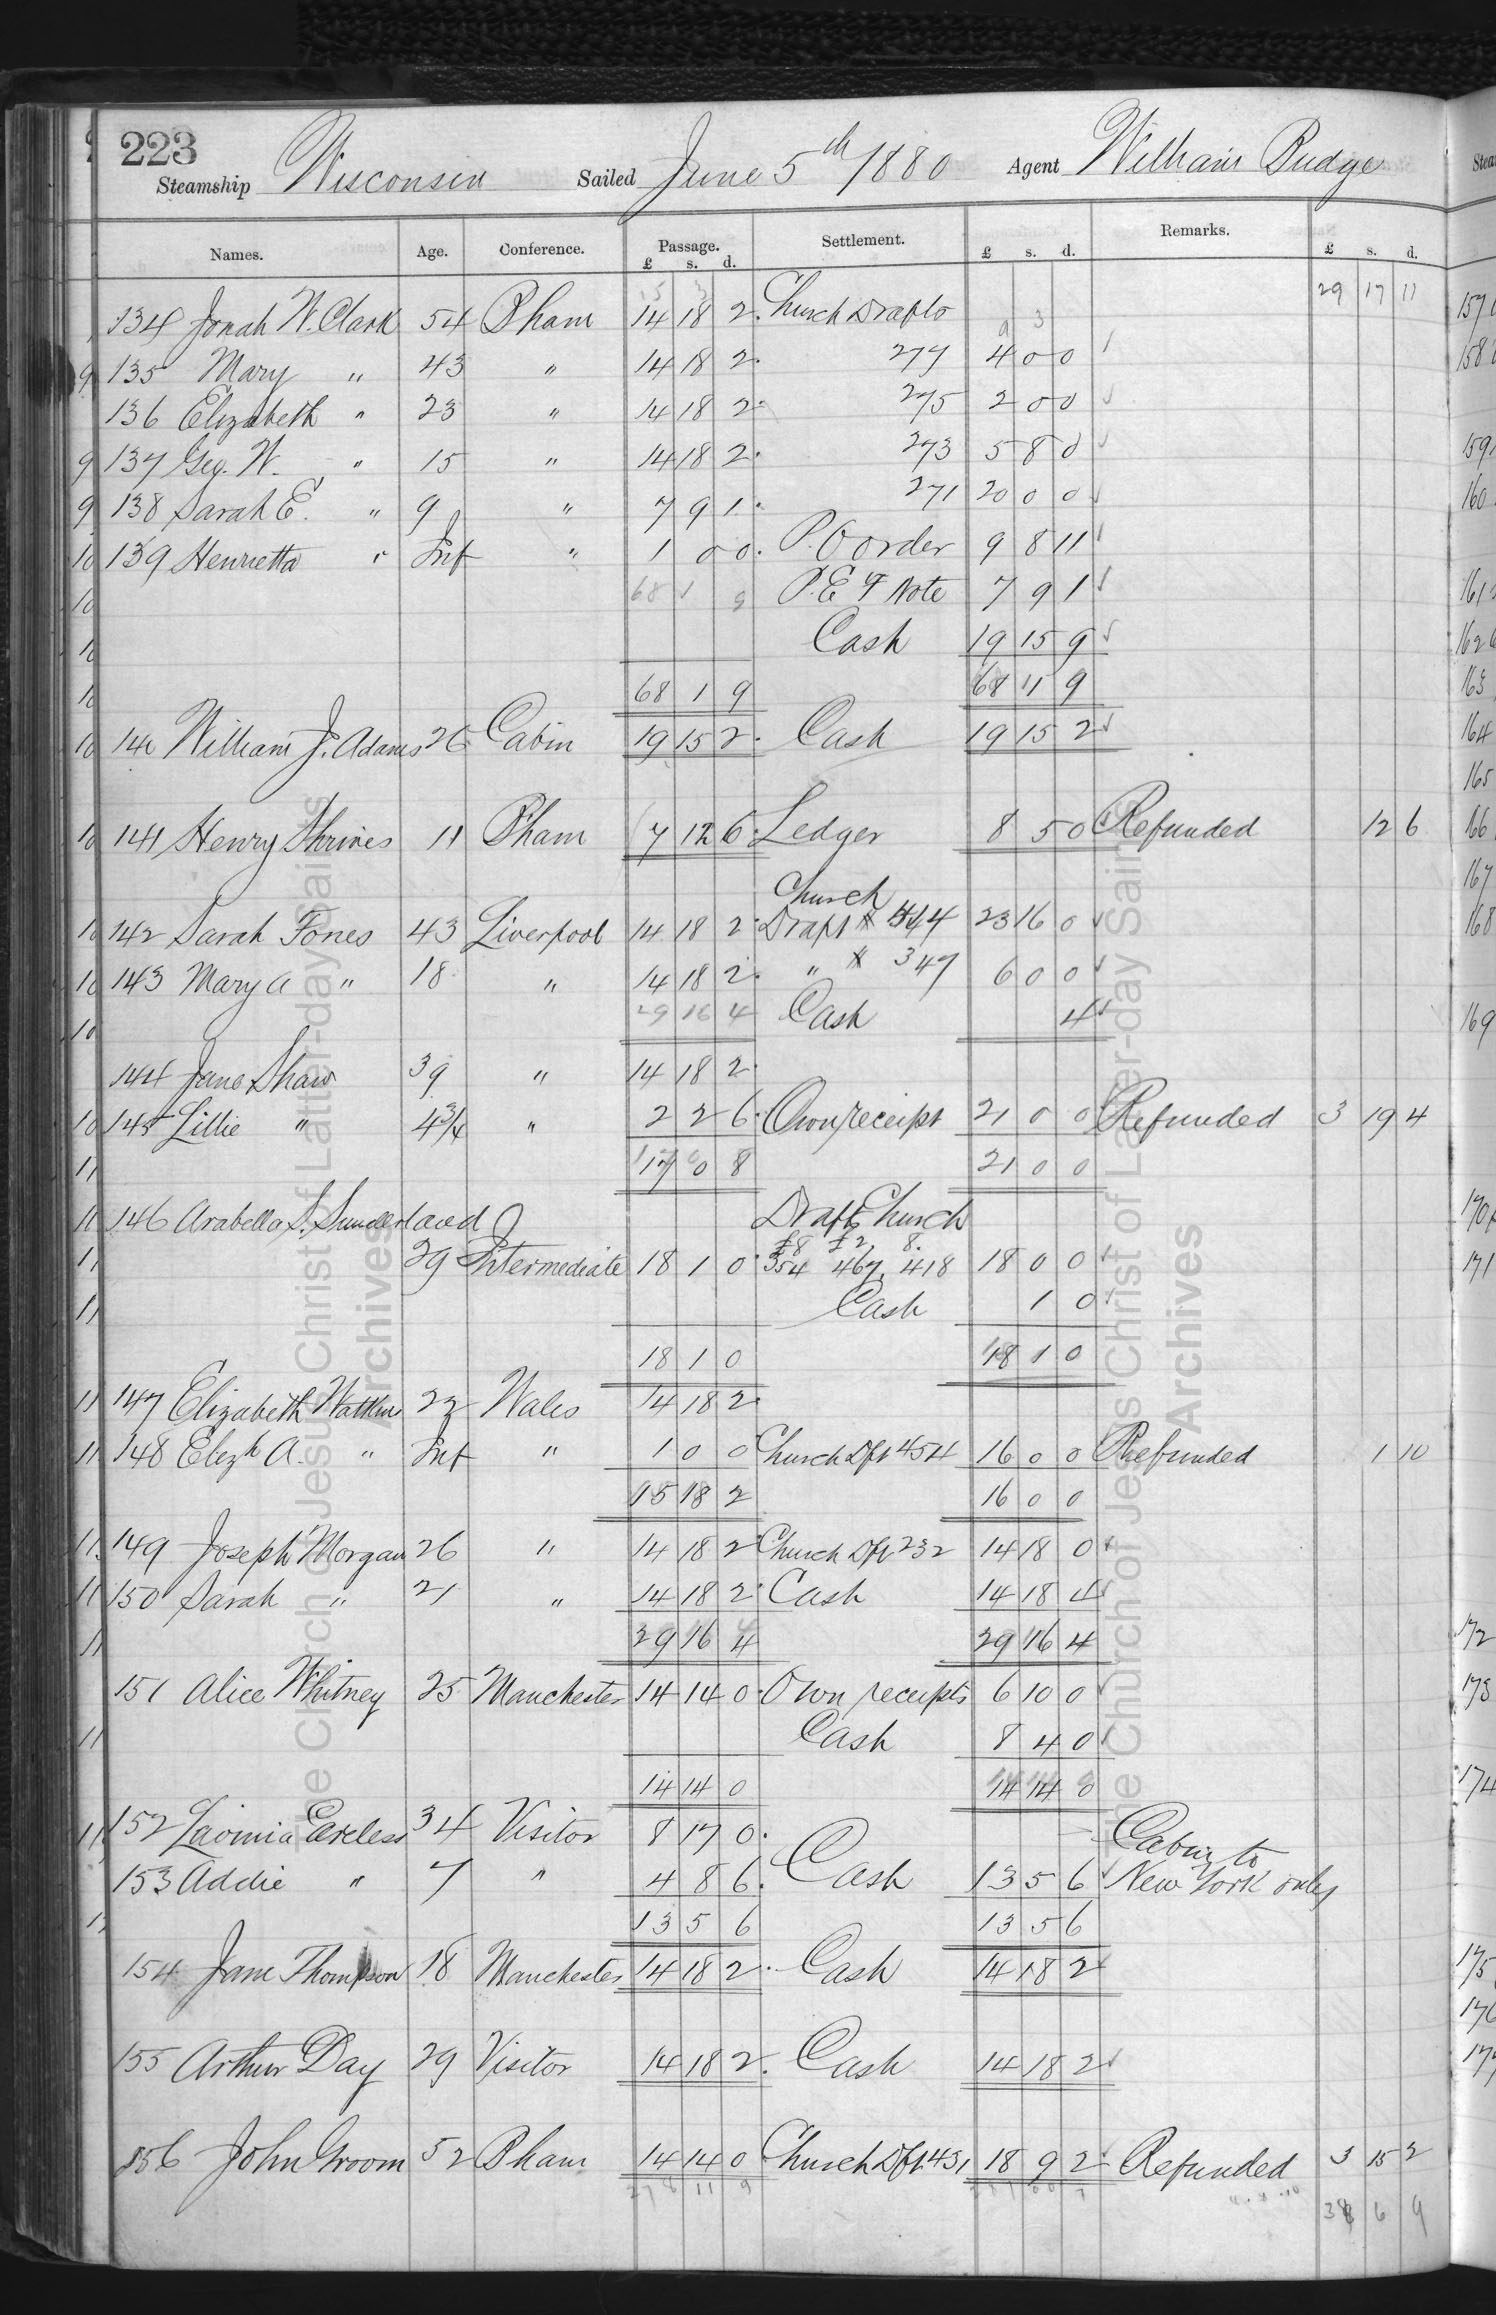 223
Steamship Wisconsin Sailed June 5th 1880 Agent William Budge
Names. Age. Conference. Passage. Settlement. Remarks.
£ s. d. £ s. d. £ s. d.
29 17 11
134 Jonah W. Clark 54 B'ham 14 18 2 Church Drafts
135 Mary " 43 " 14 18 2 277 4 0 0
136 Elizabeth " 23 " 14 18 2 275 2 0 0
137 Geo. W. " 15 " 14 18 2 273 5 8 0
138 Sarah E. " 9 " 7 9 1 271 20 0 0
139 Henrietta " Inf " 1 0 0 P.O order 9 8 11
68 1 9 P.E F Note 7 9 1
Cash 19 15 9
68 1 9 68 1 9
140 William J. Adams 26 Cabin 19 15 2 Cash 19 15 2
141 Henry Shrives 11 B'ham 7 12 6 Ledger 8 5 0 Refunded 12 6
Church
142 Sarah Jones 43 Liverpool 14 18 2 Draft 23 16 0
143 Mary A " 18 " 14 18 2 " 347 6 0 0
29 16 4 Cash 4
144 Jane Shaw 39 " 14 18 2
145 Lillie " 4 3/4 " 2 2 6 Own receipt 21 0 0 Refunded 3 19 4
17 0 8 21 0 0
146 Arabella S. Sunderland Draft Church
£8 £2 8.
29 Intermediate 18 1 0 354 467 418 18 0 0
Cash 1 0
18 1 0 18 1 0
147 Elizabeth Watkin 22 Wales 14 18 2
148 Elizh A. " Inf " 1 0 0 Church Dft 454 16 0 0 Refunded 1 10
15 18 2 16 0 0
149 Joseph Morgan 26 " 14 18 2 Church Dft 232 14 18 0
150 Sarah " 21 " 14 18 2 Cash 14 18 4
29 16 4 29 16 4
151 Alice Whitney 25 Manchester 14 14 0 Own receipts 6 10 0
Cash 8 4 0
14 14 0 14 14 0
152 Lavinia Careless 34 Visitor 8 17 0 Cabin to
153 Addie " 7 " 4 8 6 Cash 13 5 6 New York only
13 5 6 13 5 6
154 Jane Thompson 18 Manchester 14 18 2 Cash 14 18 2
155 Arthur Day 29 Visitor 14 18 2 Cash 14 18 2
156 John Groom 52 B'ham 14 14 0 Church Dft 431 18 9 2 Refunded 3 15 2
38 6 9
The Church of Jesus Christ of Latter-day Saints
Archives
The Church of Jesus Christ of Latter-day Saints
Archives